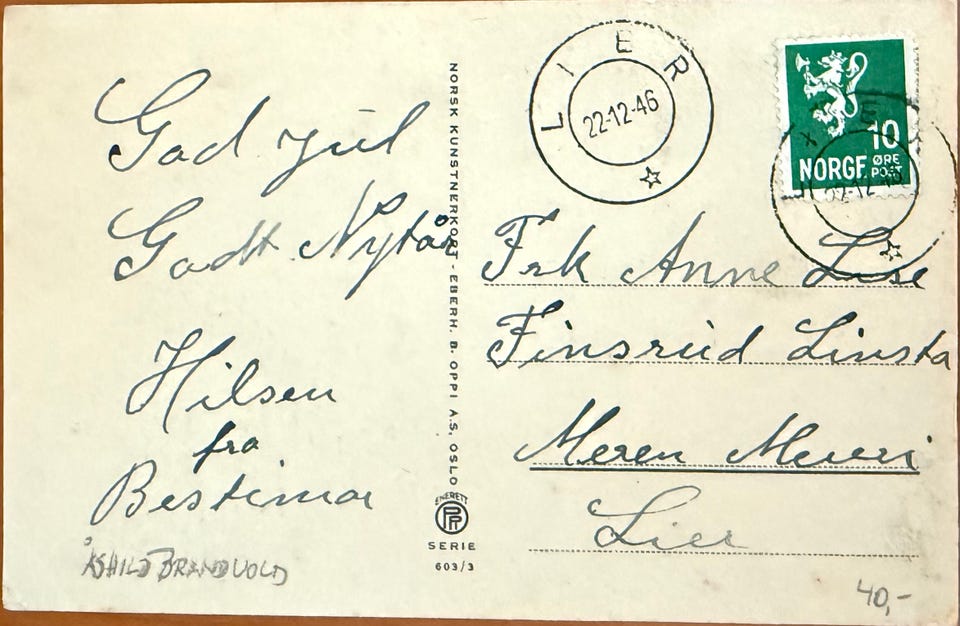 God jul
Godt Nytår
Hilsen
fra
Bestimor
ÅSHILD BRANDVOLD
NORSK KUNSTNERKORT - EBERH. B. OPPI A.S, OSLO
ENERETT
SERIE
603/3
LIER
22-12-46
10
NORGE ØRE
POST
Frk Anne Lise
Finsrud Linsta
Meren
Lier
40,-